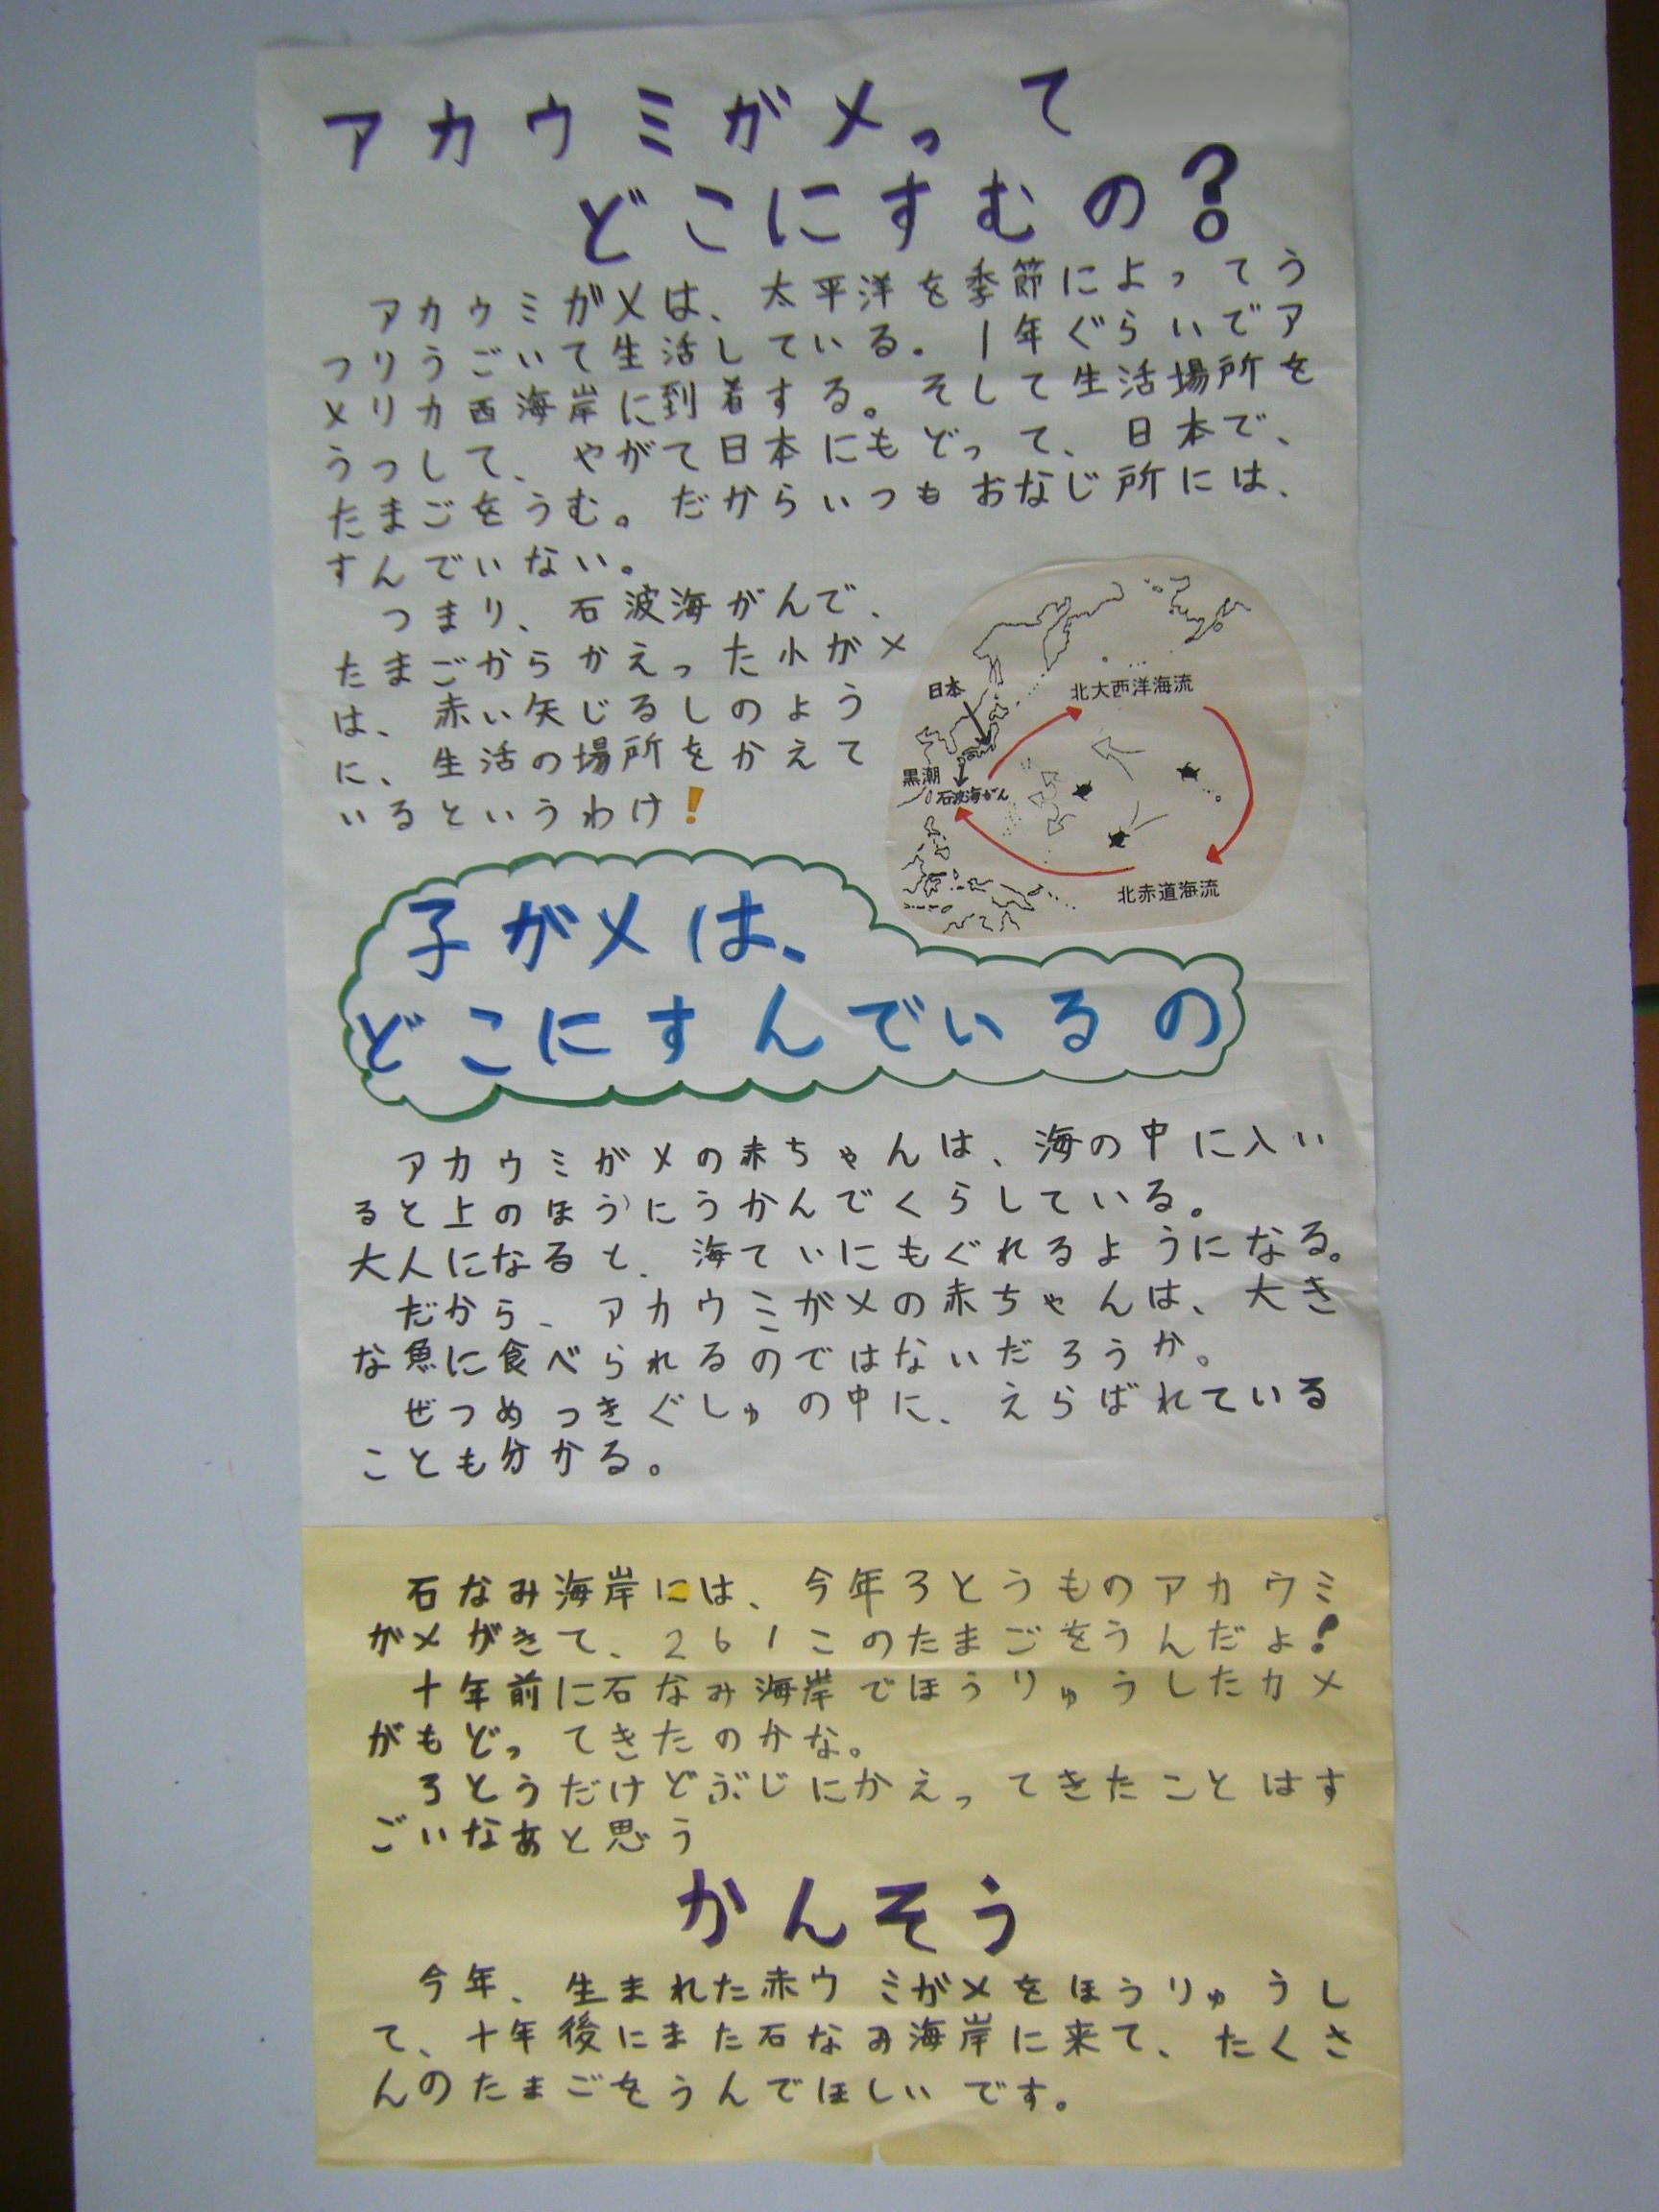 アカウミガメって
どこにすむの?
アカウミガメは、太平洋を季節によってう
つりうごいて生活している。1年ぐらいでア
メリカ西海岸に到着する。そして生活場所を
うつして、やがて日本にもどって、日本で、
たまごをうむ。だからいつもおなじ所には、
すんでいない。
つまり、石波海がんで、
たまごからかえった小がメ
は、赤い矢じるしのよう
に、生活の場所をかえて
いるというわけ!
日本
北大西洋海流
黒潮
石波海がん
北赤道海流
子がメは、
どこにすんでいるの
アカウミがメの赤ちゃんは、海の中に入い
ると上のほうにうかんでくらしている。
大人になると、海ていにもぐれるようになる。
だから、アカウミがメの赤ちゃんは、大き
な魚に食べられるのではないだろうか。
ぜつめっきぐしゅの中に、えらばれている
ことも分かる。
石なみ海岸には、今年3とうものアカウミ
がメがきて、261このたまごをうんだよ!
十年前に石なみ海岸でほうりゅうしたカメ
がもどってきたのかな。
3とうだけどぶじにかえってきたことはす
ごいなあと思う
かんそう
今年、生まれた赤ウミがメをほうりゅうし
て、十年後にまた石なみ海岸に来て、たくさ
んのたまごをうんでほしいです。